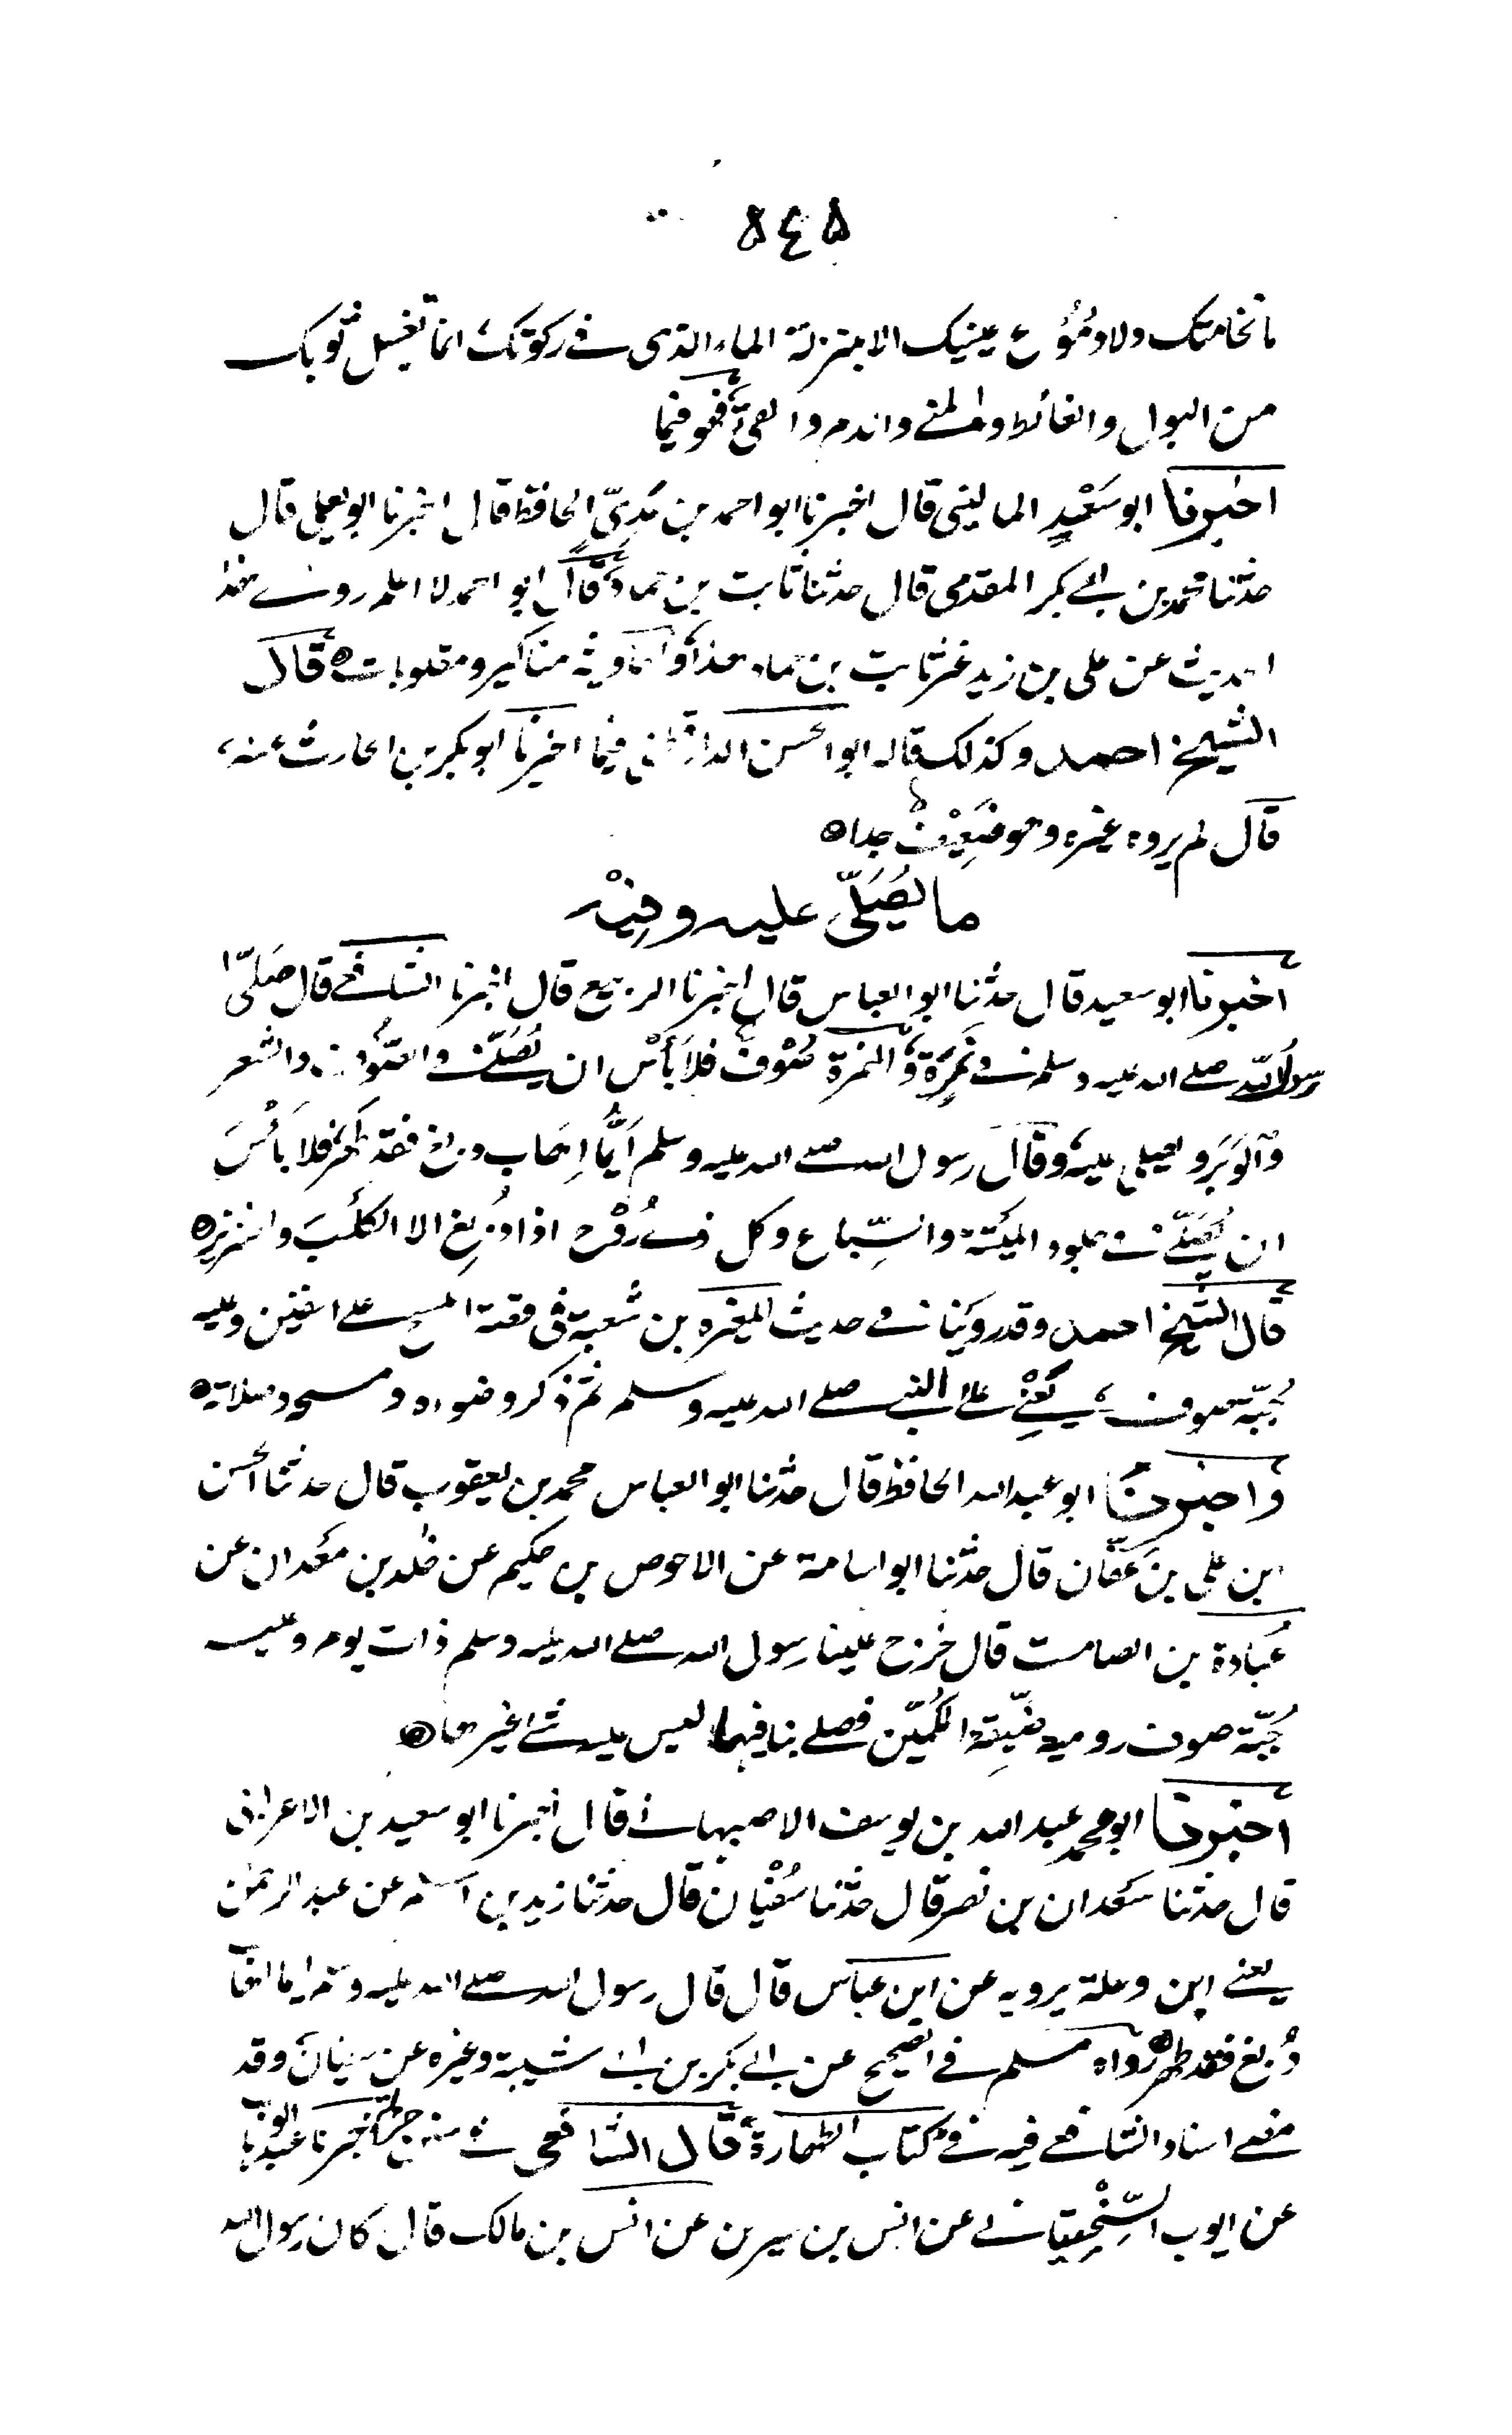 ٥٤٥
ما نخامتك ولا دُمُوُع عينيك الا بمنزلة الماء الذى فى ركوتك انما تغسل ثوبك
من البول والغائط والمنى والدم والقىء فهو فيما
اخبرنا ابو سَعْيدٍ المالينى قال اخبرنا ابو احمد بن عَدِىّ الحافظ قال اخبرنا ابو يعلى قال
حدثنا محمد بن ابى بكر المقدمى قال حدثنا ثابت بن حماد قال ابو احمد لا اعلم روى هذا
الحديث عن على بن زيد غير ثابت بن حماد هذا واحاديثه مناكير ومقلوبات ه قال
الشيخ احمد وكذلك قاله ابو الحسن الدارقطنى فيما اخبرنا ابو بكر بن الحارث عنه
قال لم يروه غيره وهو ضَعِيْفْ جدا ه
ما يُصَلّى عليه وفِيْه
اخبرنا ابو سعيد قال حدثنا ابو العباس قال اخبرنا الربيع قال اخبرنا الشافعى قال صَلّى
رسول الله صلى الله عليه وسلم فى نَمِرَة والنمرة صُوْف فلا بَأسْ ان يُصَلّى فى الصُوف والشعر
والوَبَر ويصلى عليه وقال رسول الله صلى الله عليه وسلم اَيُّما اِهَاب دبغ فقد طهر فلا بَأسَ
ان يُصَلّى فى جلود الميتة والسِّباع وكل ذى رُوْح اذا دُبِغ الا الكلْبَ والخنزير ه
قال الشيخ احمد وقد روَيْنا فى حديث المغيره بن شعبة فى قصة المسح على الخفين وعليه
جُبّة صوف يَعْنِى على النبى صلى الله عليه وسلم ثم ذكر وضوءه ومسحه وصلاته ه
واخبرنا ابو عبد الله الحافظ قال حدثنا ابو العباس محمد بن يعقوب قال حدثنا الحسن
ابن على بن عَفّان قال حدثنا ابو اسامة عن الاحوص بن حكيم عن خٰلد بن معْدان عن
عُبادة بن الصامت قال خرج علينا رسول الله صلى الله عليه وسلم ذات يوم وعليه
جُبّة صوف روميه ضَيّقة الكُمّيَن فصلى بنا فيها ليس عليه شئ غيرها ه
اخبرنا ابو محمد عبد الله بن يوسف الاصبهانى قال اخبرنا ابو سعيد بن الاعرابى
قال حدثنا سَعْدان بن نصر قال حدثنا سُفْيان قال حدثنا زيد بن اسلم عن عبد الرحمٰن
يعنى ابن وعلة يرويه عن ابن عباس قال قال رسول الله صلى الله عليه وسلم ايما اهاب
دُبغ فقد طهر ه رواه مسلم فى الصحيح عن ابى بكر بن ابى شيبة وغيره عن سفيان وقد
مضى اسناد الشافعى فيه فى كتاب الطهارة قال الشافعى فى سنن حرملة اخبرنا عبد الوهاب
عن ايوب السِّخْتِيانى عن انس بن سيرين عن انس بن مالك قال كان رسول الله